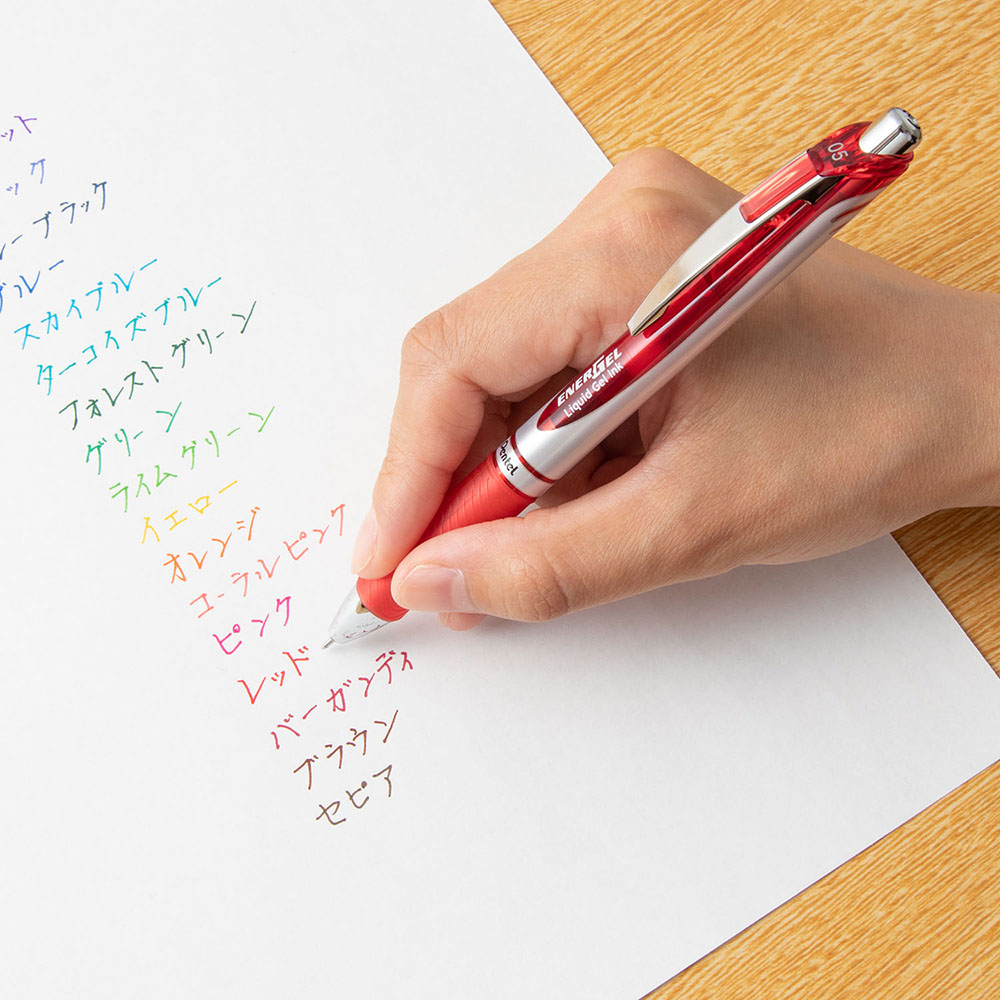 ット
ック
ルーブラック
ブルー
スカイブルー
ターコイズブルー
フォレストグリーン
グリーン
ライムグリーン
イエロー
オレンジ
コーラルピンク
ピンク
レッド
バーガンディ
ブラウン
セピア
05
ENERGEL
Liquid Gel ink
Pentel